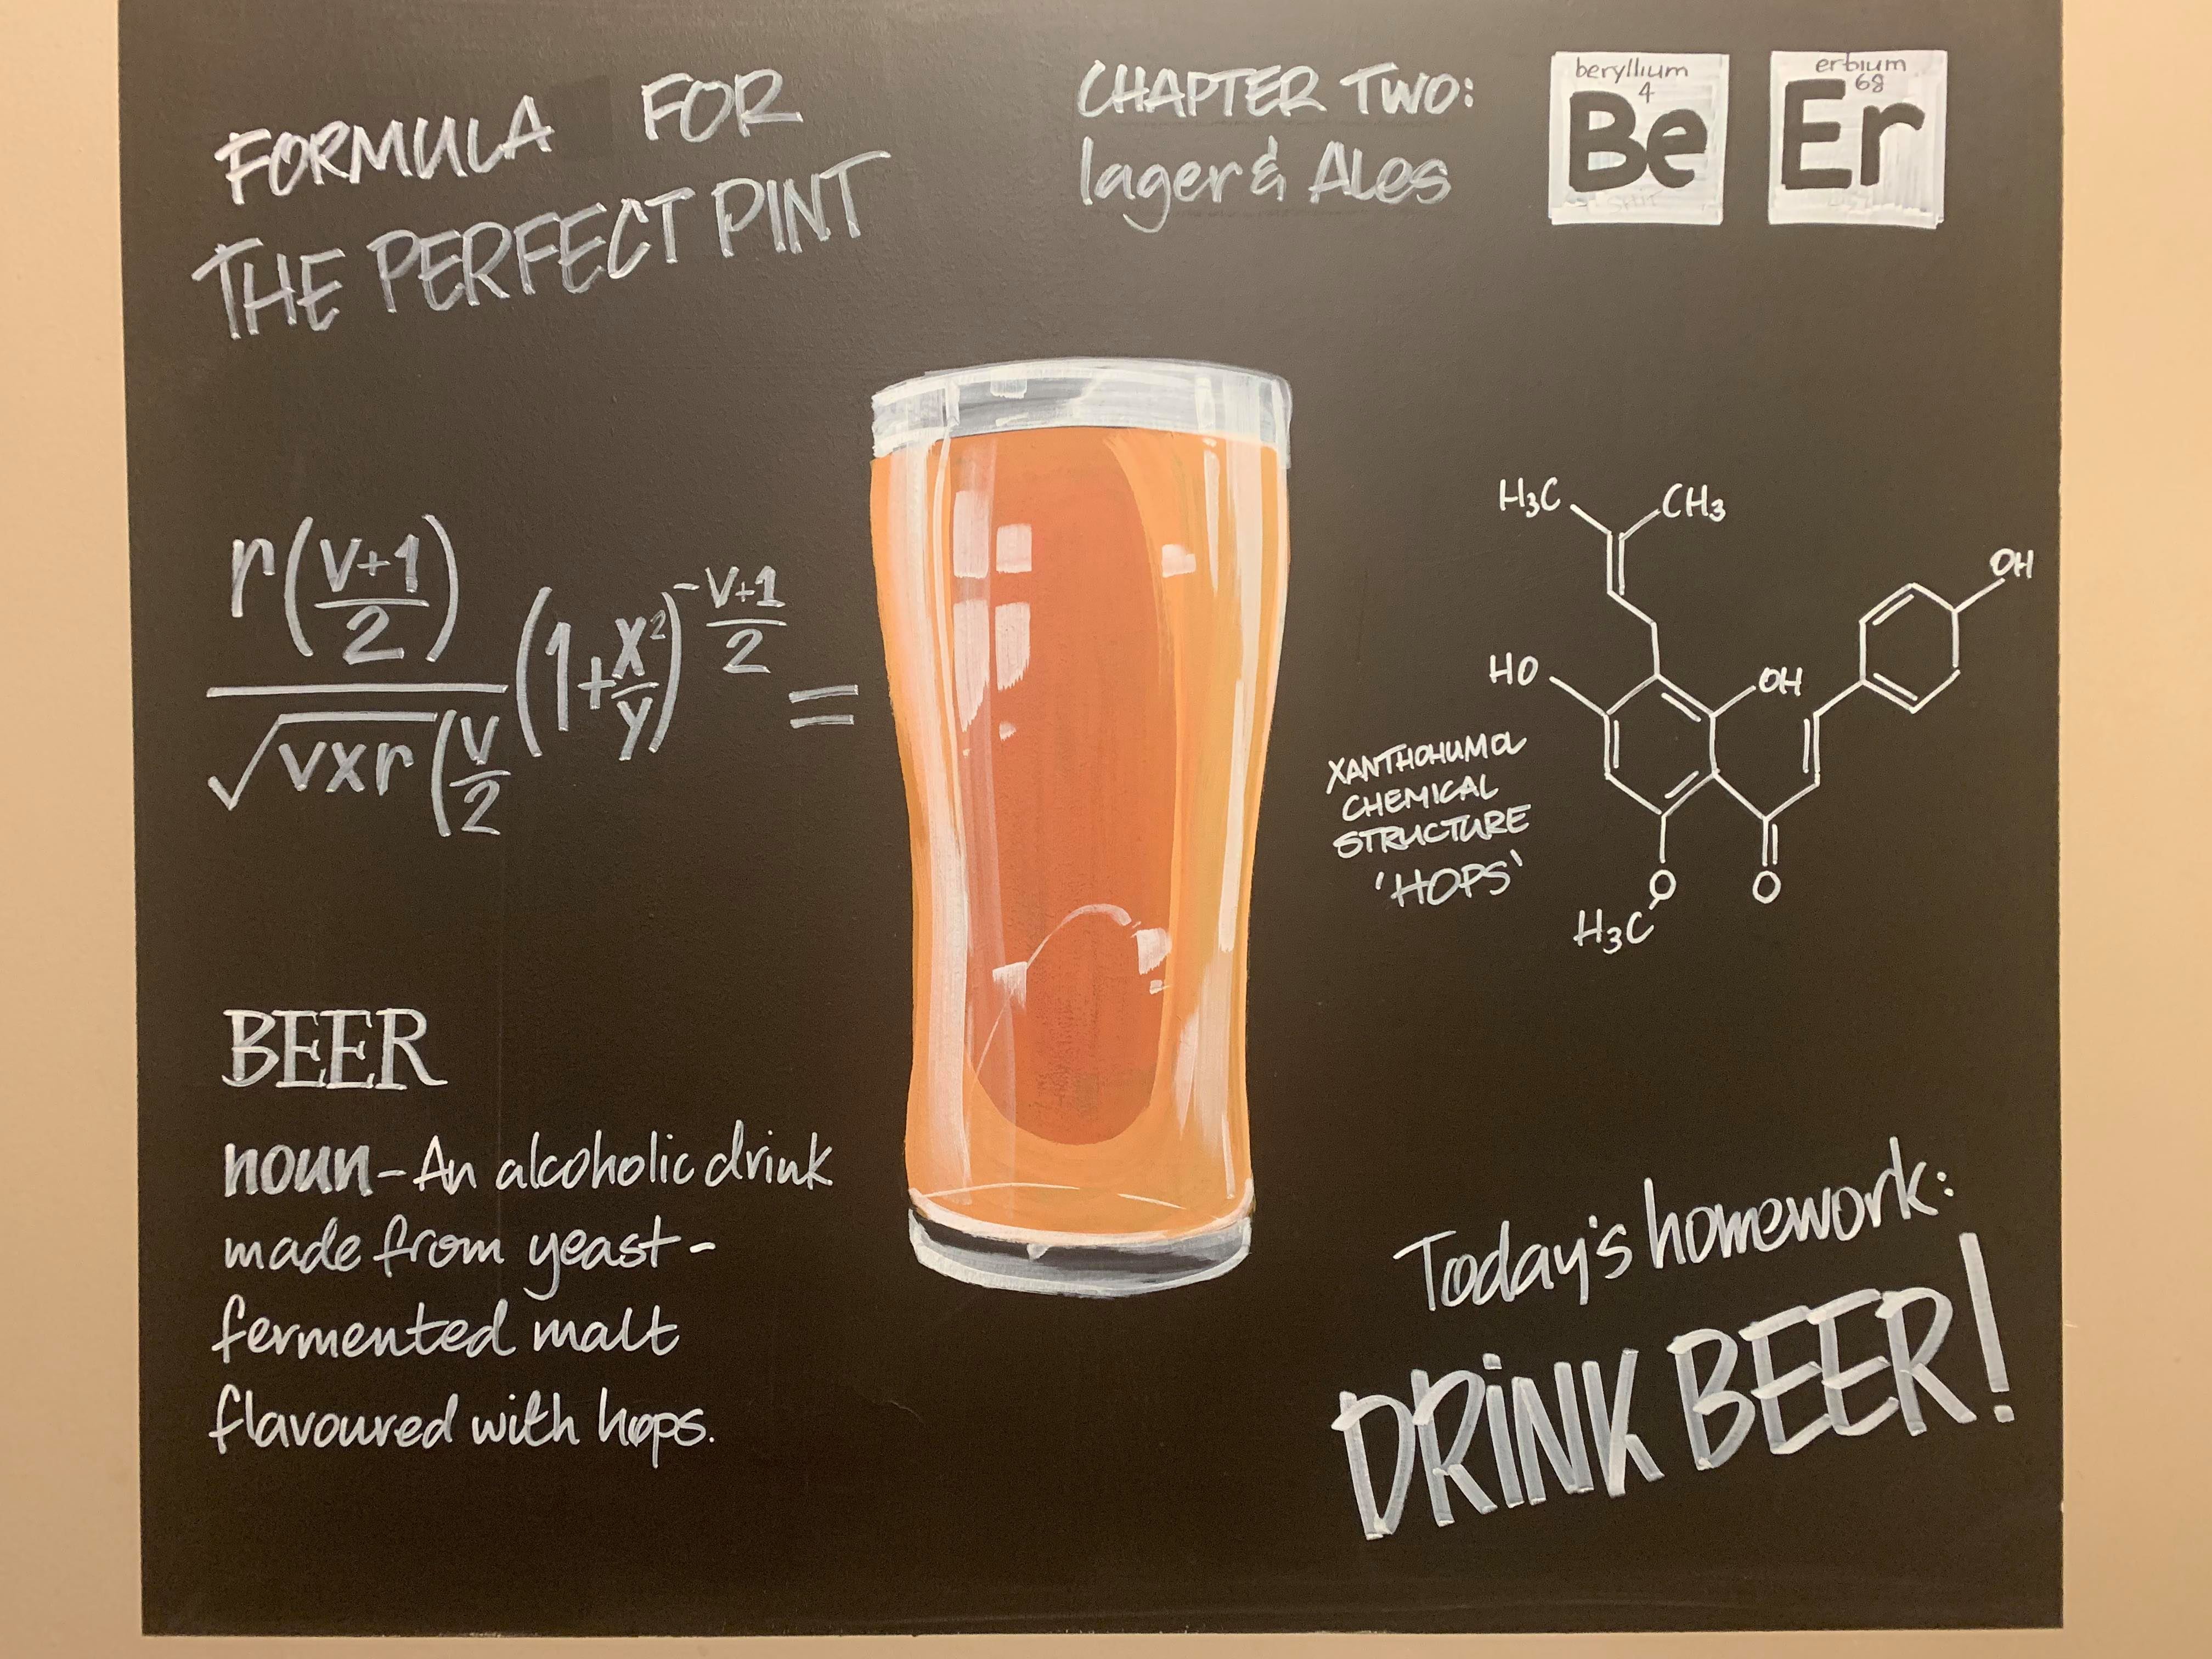 FORMULA FOR
THE PERFECT PINT
CHAPTER TWO:
lager & Ales
beryllium
4
Be
erbium
68
Er
r(v+1/2) / √vxr(v/2 (1+x²/y)^-v+1/2 =
H₃C CH₃
OH
HO OH
O O
H₃C
XANTHOHUMOL
CHEMICAL
STRUCTURE
'HOPS'
BEER
noun - An alcoholic drink
made from yeast-
fermented malt
flavoured with hops.
Today's homework:
DRiNK BEER!